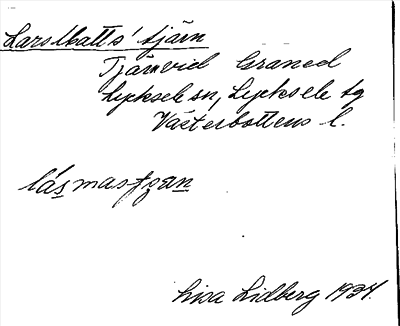 Lars Matts' tjärn
Tjärn vid Graned
Lycksele sn, Lycksele tg
Västerbottens l.
Lisa Lidberg 1934.